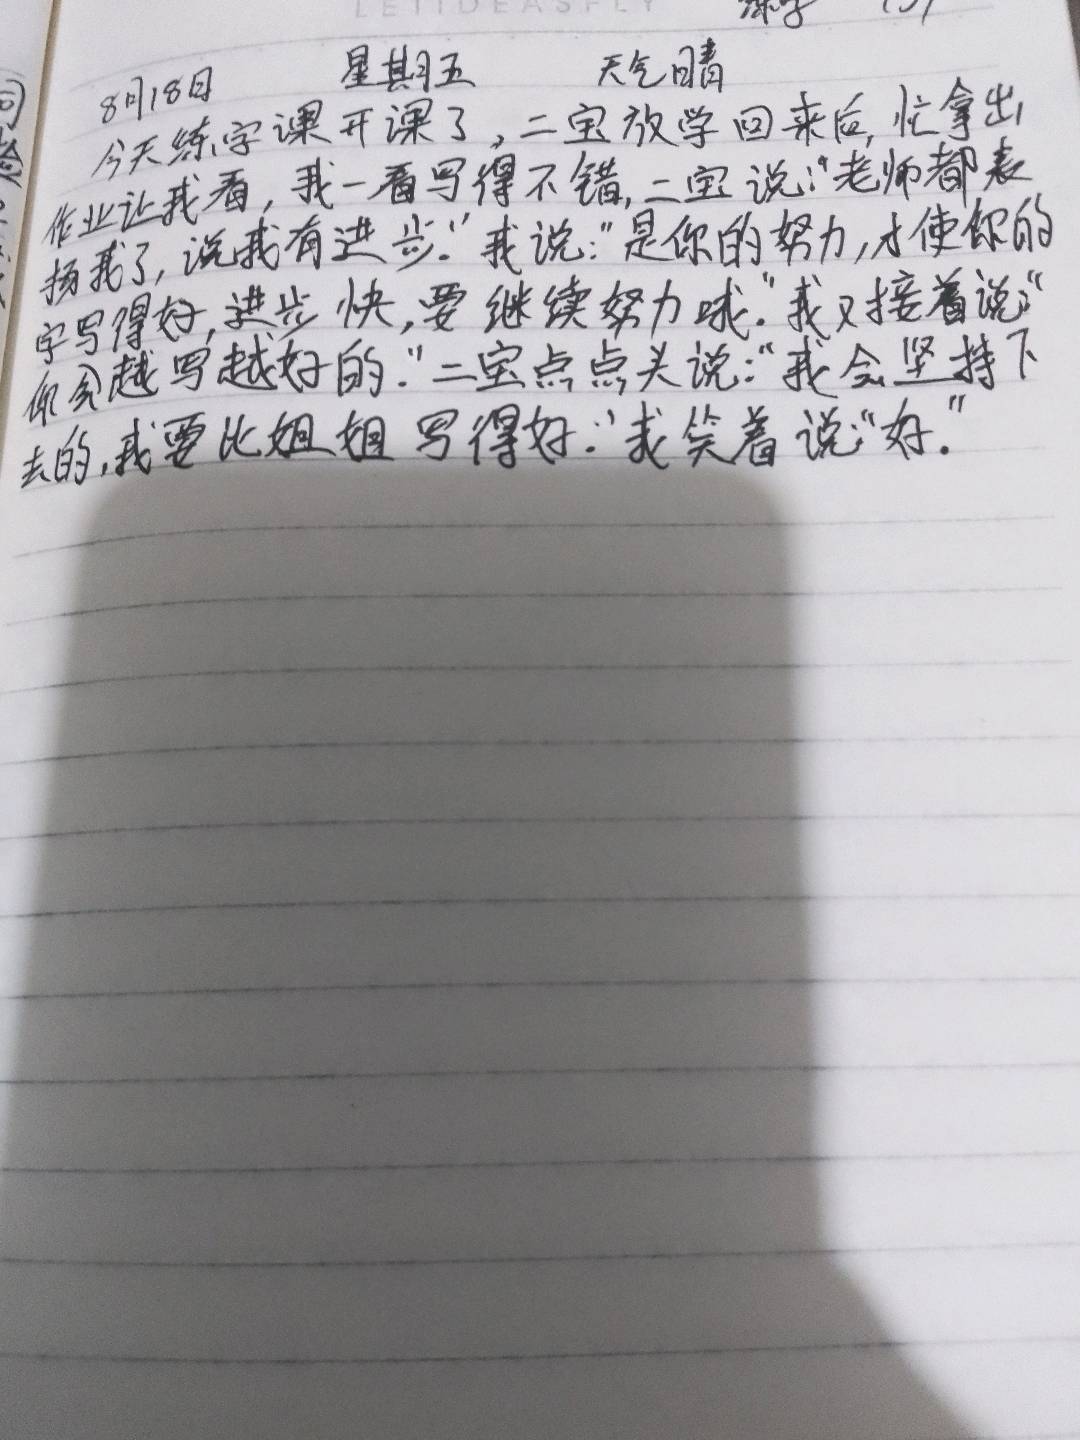 LETIDEASFLY
8月18日 星期五 天气晴
今天练字课开课了,二宝放学回来后,忙拿出
作业让我看,我一看写得不错,二宝说:"老师都表
扬我了,说我有进步."我说:"是你的努力,才使你的
字写得好,进步快,要继续努力哦."我又接着说:"
你会越写越好的."二宝点点头说:"我会坚持下
去的,我要比姐姐写得好."我笑着说:"好."